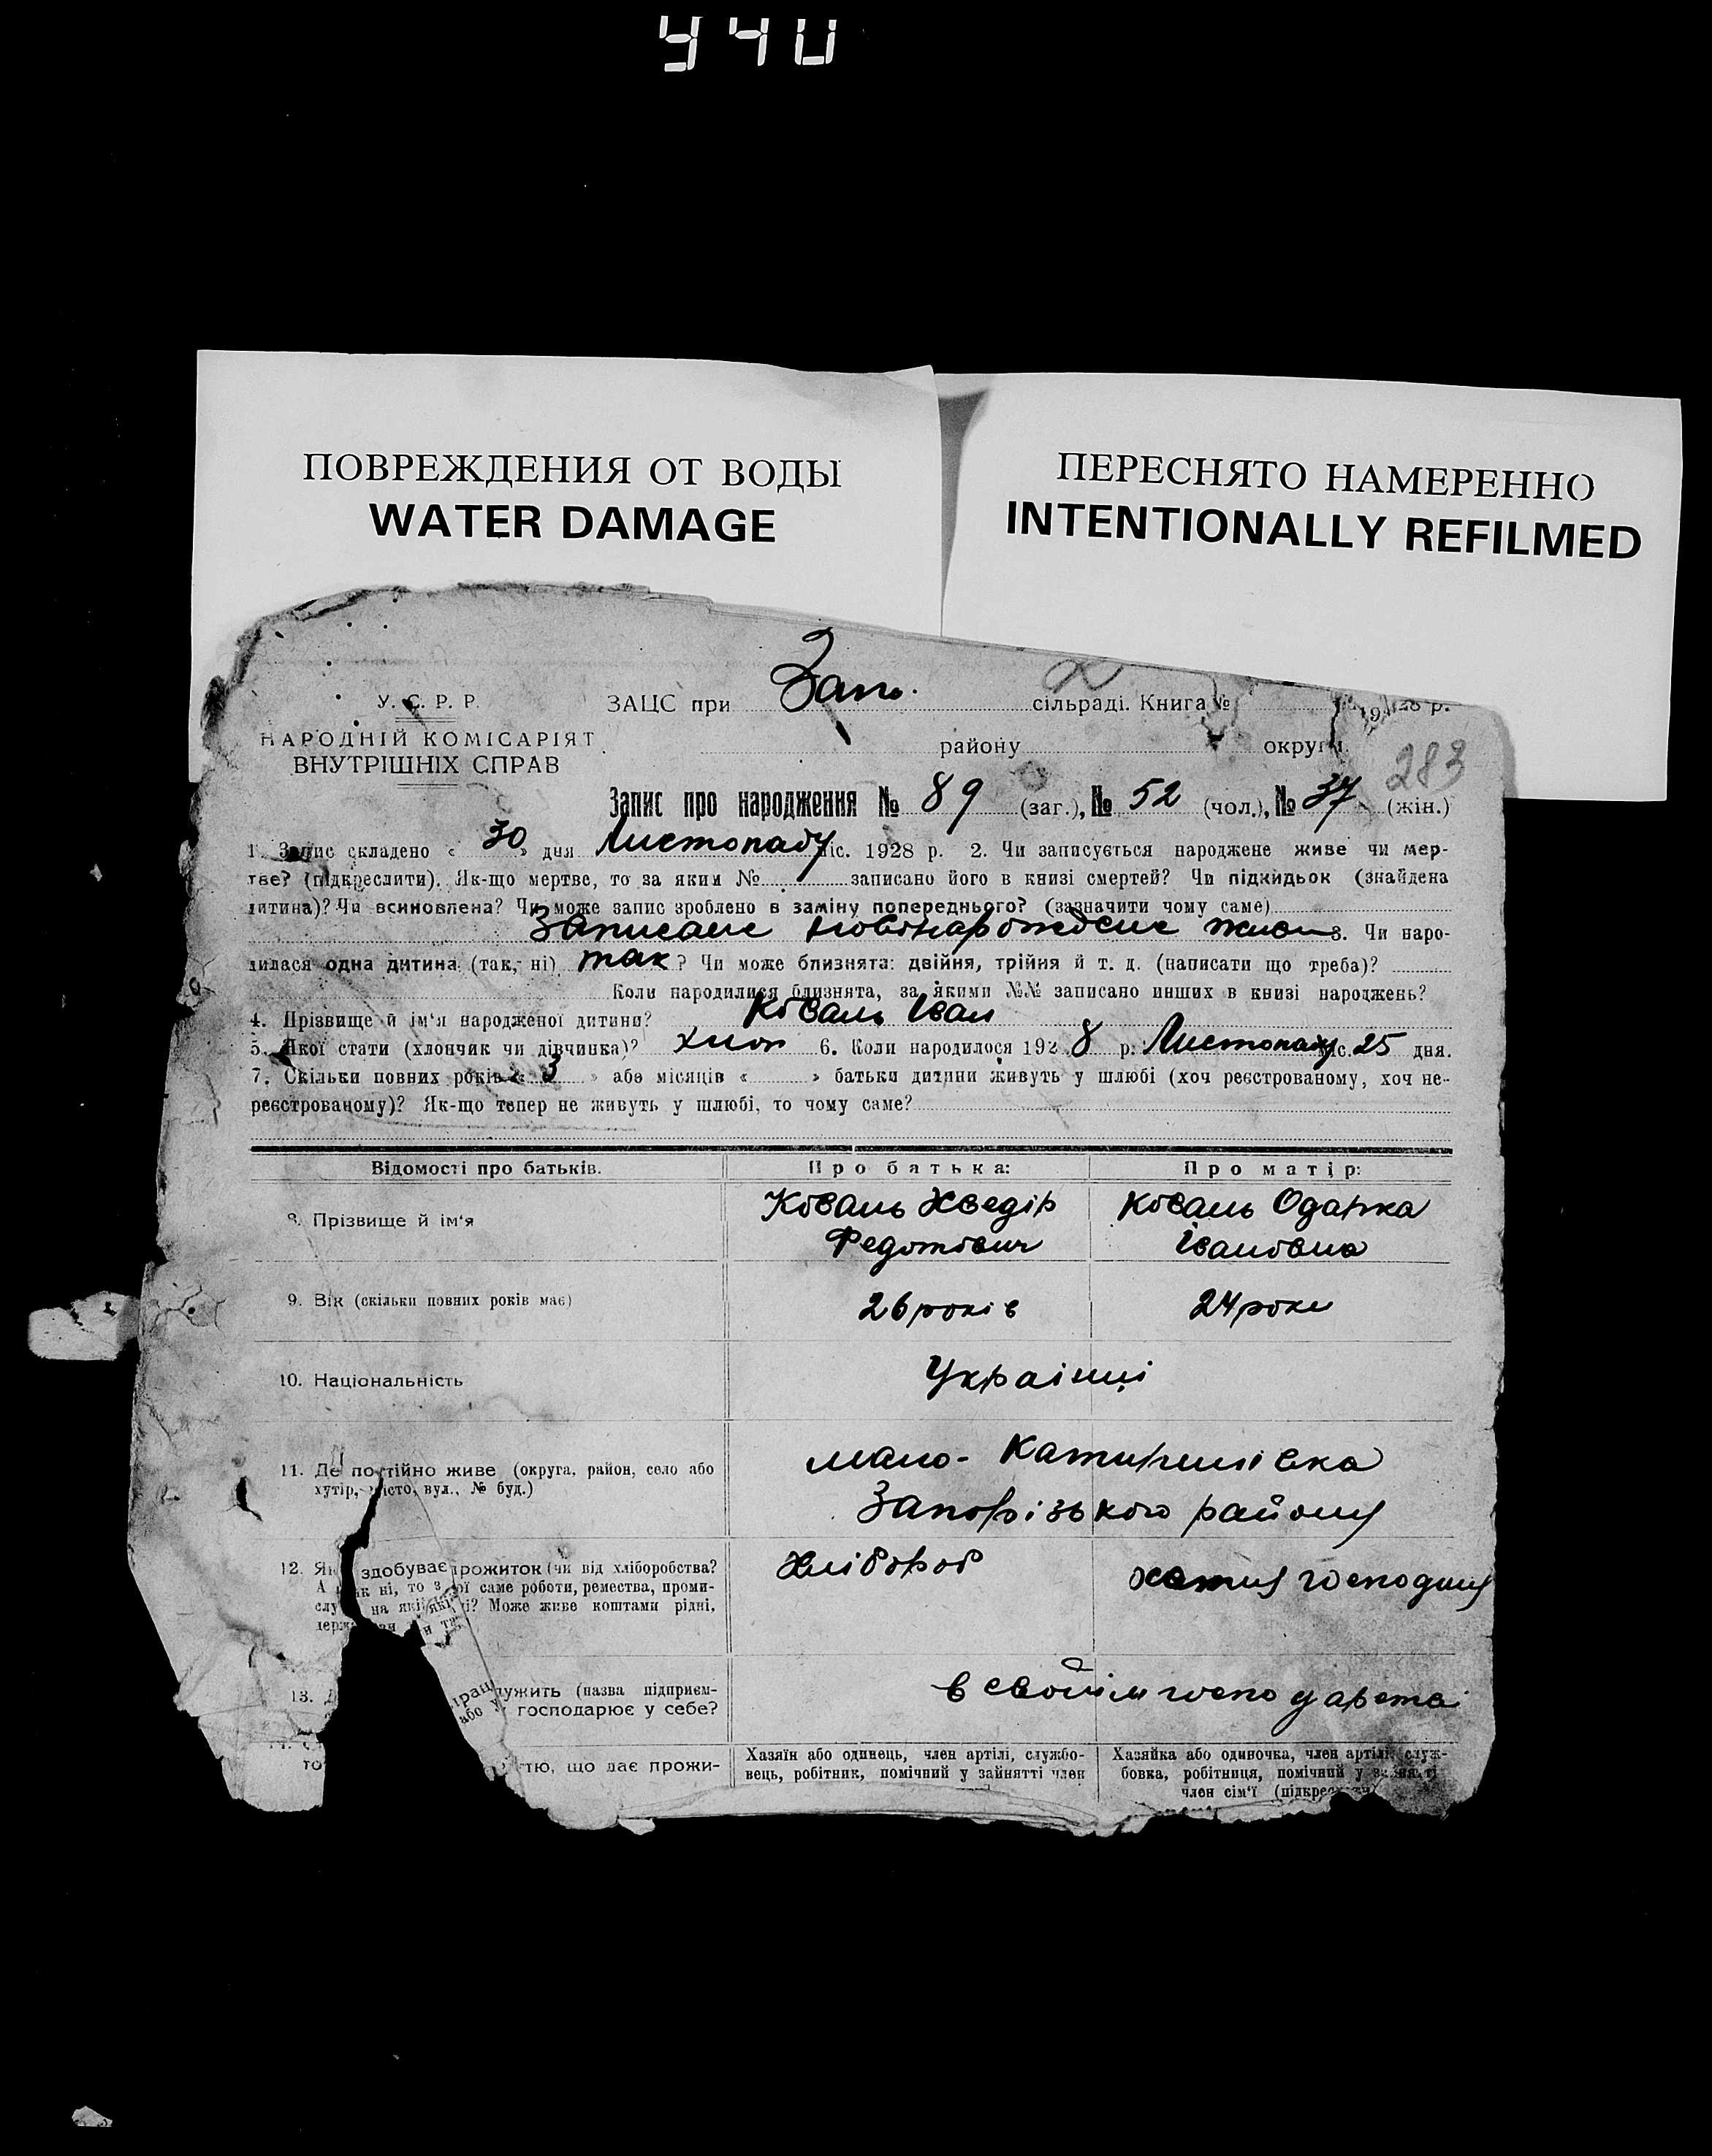 940
ПОВРЕЖДЕНИЯ ОТ ВОДЫ
WATER DAMAGE
ПЕРЕСНЯТО НАМЕРЕННО
INTENTIONALLY REFILMED
У. С. Р. Р.
НАРОДНІЙ КОМІСАРІЯТ
ВНУТРІШНІХ СПРАВ
ЗАЦС при Зап. сільраді. Книга № 1928 р.
району округи
283
Запис про народження № 89 (заг.), № 52 (чол.), № 37 (жін.)
1. Запис складено « 30 » дня Листопаду міс. 1928 р. 2. Чи записується народжене живе чи мер-
тве? (підкреслити). Як-що мертве, то за яким № записано його в книзі смертей? Чи підкидьок (знайдена
дитина)? Чи всиновлена? Чи може запис зроблено в заміну попереднього? (зазначити чому саме)
Записане новонарождене живе 3. Чи наро-
дилася одна дитина (так, ні) так ? Чи може близнята: двійня, трійня й т. д. (написати що треба)?
Коли народилися близнята, за якими №№ записано инших в книзі народжень?
4. Прізвище й ім'я народженої дитини? Коваль Іван
5. Якої стати (хлопчик чи дівчинка)? хлоп 6. Коли народилося 192 8 р. Листопаду міс. 25 дня.
7. Скільки повних років « 3 » або місяців « » батьки дитини живуть у шлюбі (хоч реєстрованому, хоч не-
реєстрованому)? Як-що тепер не живуть у шлюбі, то чому саме?
Відомості про батьків. Про батька: Про матір:
8. Прізвище й ім'я Коваль Хведір Федотович Коваль Одарка Івановна
9. Вік (скільки повних років має) 26 років 24 роки
10. Національність Украінці
11. Де постійно живе (округа, район, село або
хутір, місто, вул., № буд.)
мало-Катиринівка
Запорізького району
12. Як здобуває прожиток (чи від хліборобства?
А як ні, то з якої саме роботи, ремества, проми-
слу на якій Може живе коштами рідні,
Хлібороб хатня господиня
13. служить (назва підприєм-
або господарює у себе?
в своїм господарстві
то що дає прожи-
Хазяїн або одинець, член артілі, службо-
вець, робітник, помічний у зайнятті член
Хазяйка або одиночка, член артілі, служ-
бовка, робітниця, помічний у зайнятті
член сім'ї